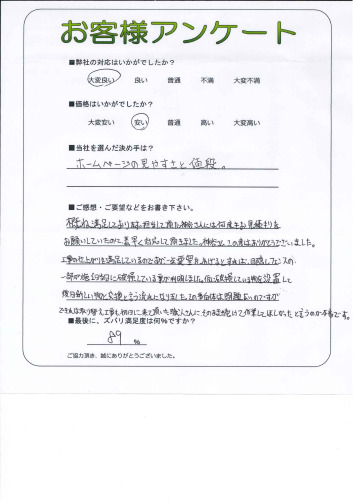 お客様アンケート
■弊社の対応はいかがでしたか?
大変良い 良い 普通 不満 大変不満
■価格はいかがでしたか?
大変安い 安い 普通 高い 大変高い
■当社を選んだ決め手は?
ホームページの見やすさと値段。
■ご感想・ご要望などをお書き下さい。
概ね満足しております。担当して頂いた神谷さんには何度もお見積もりを
お願いしていたのに、素早く対応して頂きました。神谷さん、この度はありがとうございました。
工事の仕上がりも満足しているのですが、一点要望をあげるとすれば、目隠しフェンスの
一部が施工当日に破損している事が判明しました。仮に破損している物を設置して
後日新しい物と交換と言う流れになりました。この事自体は問題ないのですが
できれば取り替え工事も初日に来て頂いた職人さんにそのまま続けて作業してほしかったと言うのが本音です。
■最後に、ズバリ満足度は何%ですか?
89 %
ご協力頂き、誠にありがとうございました。